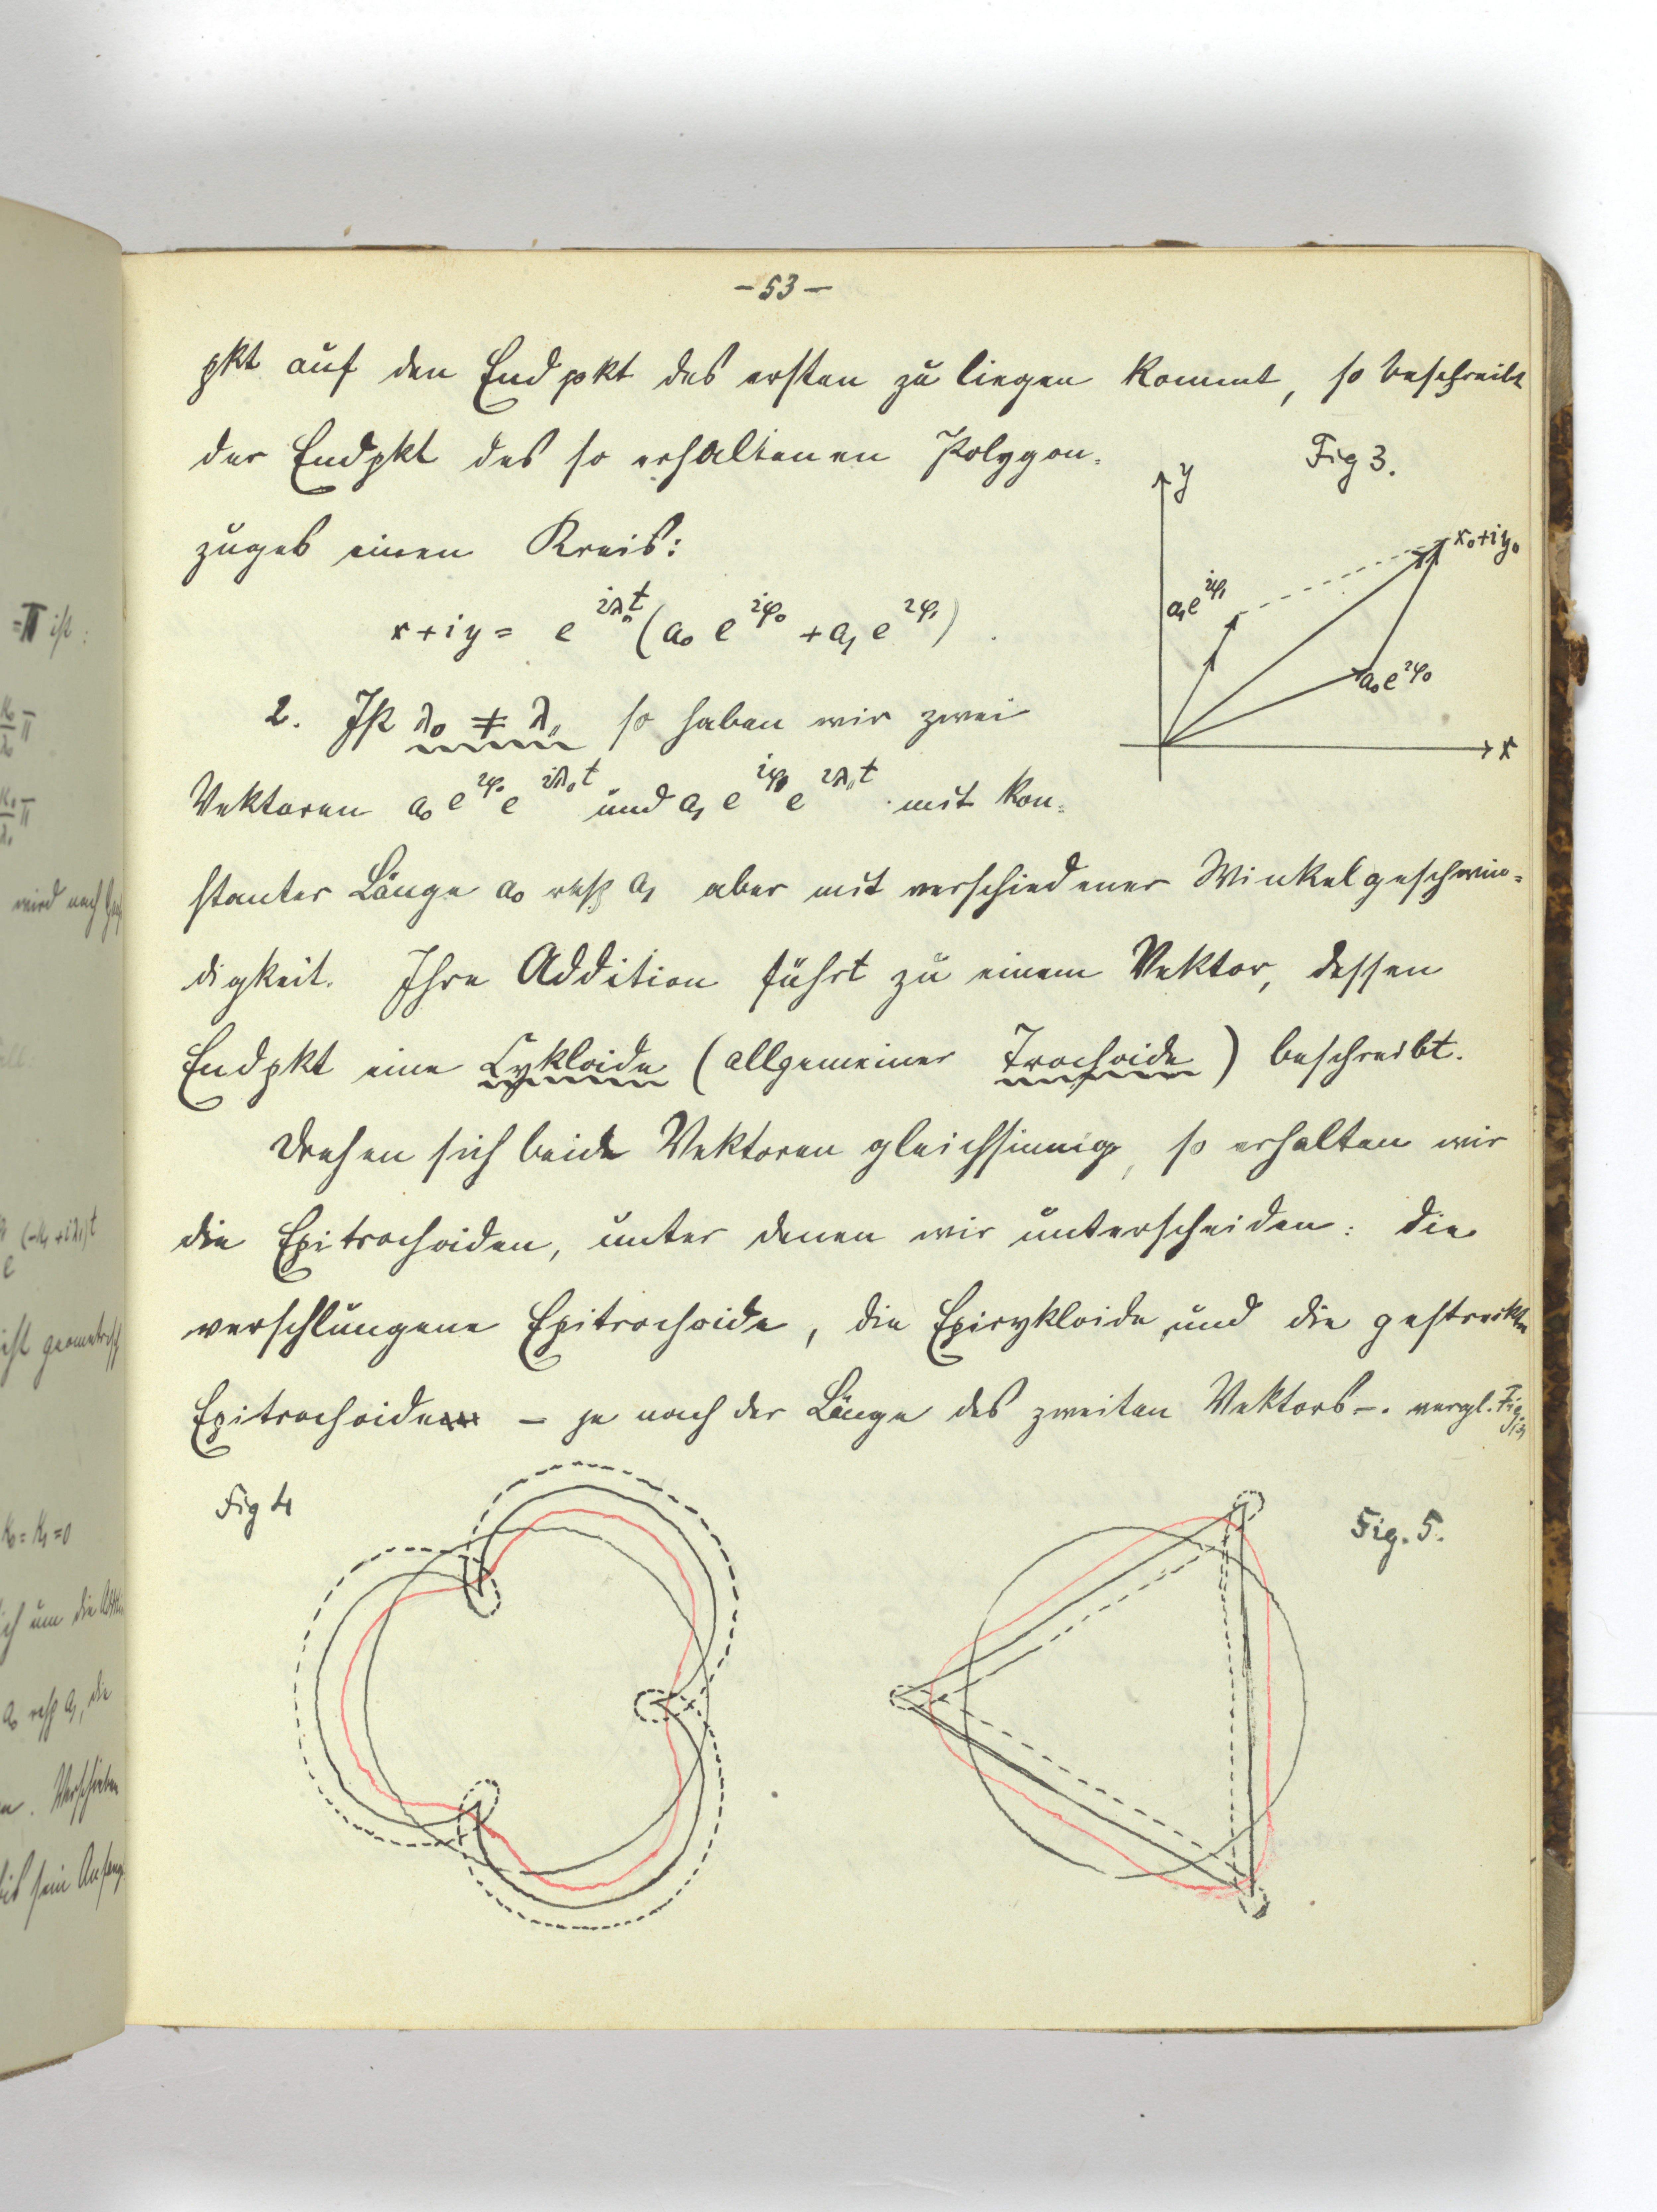 -53-
pkt auf den Endpkt des ersten zu liegen kommt, so beschreibt
der Endpkt des so erhaltenen Polygon-
Fig 3.
zuges einen Kreis:
y
x₀+iy₀
a₁e^{iφ₁}
a₀e^{iφ₀}
x
x+iy = e^{iλ₀t}(a₀ e^{iφ₀} + a₁ e^{iφ₁}).
2. Ist λ₀ ≠ λ₁, so haben wir zwei
Vektoren a₀ e^{iφ₀} e^{iλ₀t} und a₁ e^{iφ₁} e^{iλ₁t} mit kon-
stanter Länge a₀ resp a₁ aber mit verschiedener Winkelgeschwin-
digkeit. Ihre Addition führt zu einem Vektor, dessen
Endpkt eine Cykloide (allgemeiner Trochoide) beschreibt.
Drehen sich beide Vektoren gleichsinnig, so erhalten wir
die Epitrochoiden, unter denen wir unterscheiden: die
verschlungene Epitrochoide, die Epicykloide und die gestreckte
Epitrochoide – je nach der Länge des zweiten Vektors –. vergl. Fig.
Fig 4
Fig. 5.
=π ist:
wird nach
e^{(-κ₁+iλ₁)t}
κ₀=κ₁=0
ich um die
a₀ resp a₁, die